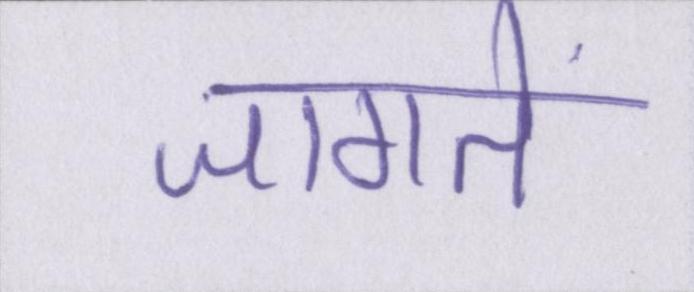 जागतें